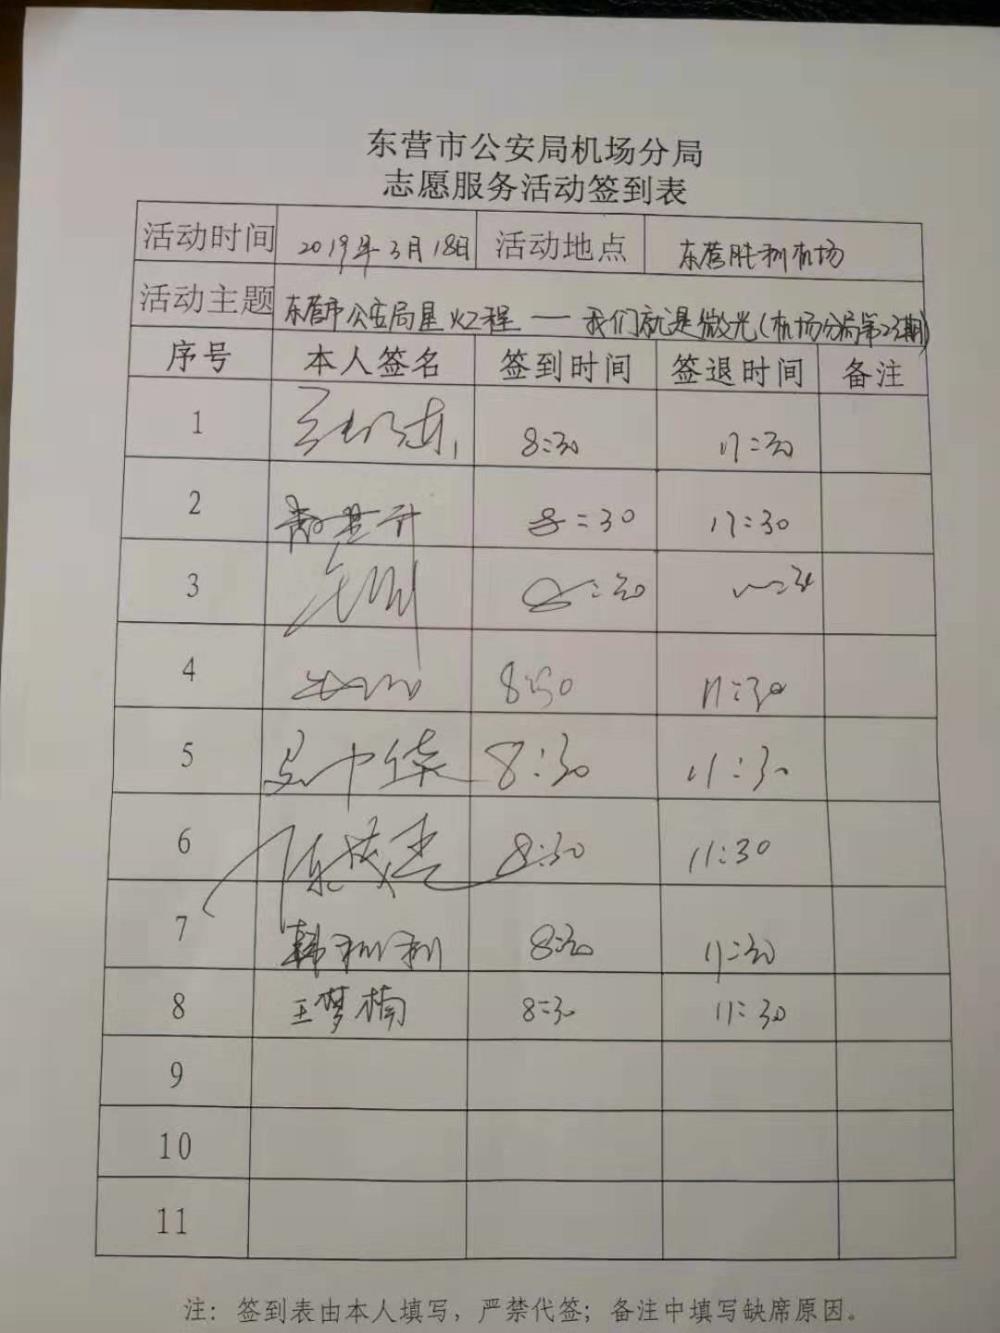 东营市公安局机场分局
志愿服务活动签到表
活动时间 2019年3月18日 活动地点 东营胜利机场
活动主题 东营市公安局星火工程 — 我们就是微光(机场分局第23期)
序号 本人签名 签到时间 签退时间 备注
1 8:30 17:30
2 8:30 17:30
3 8:30
4 8:30 11:30
5 马中华 8:30 11:30
6 陈茂杰 8:30 11:30
7 韩利利 8:30 11:30
8 王梦楠 8:30 11:30
9
10
11
注：签到表由本人填写，严禁代签；备注中填写缺席原因。